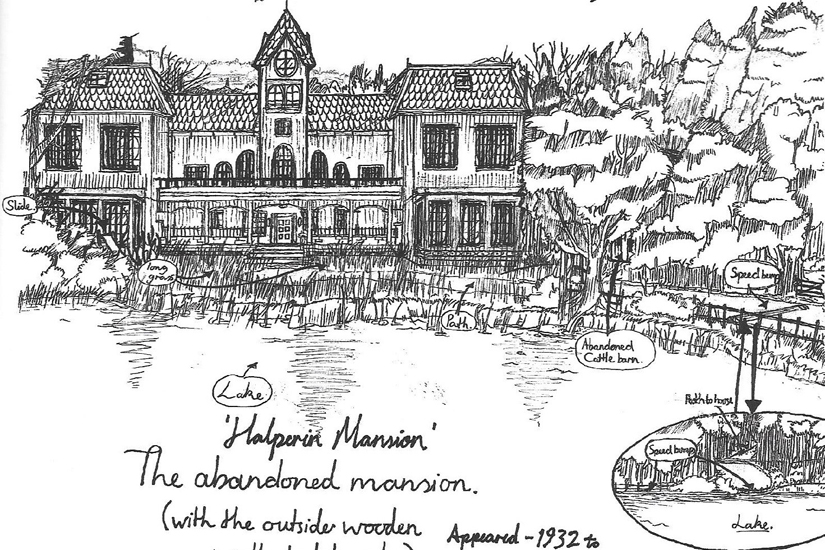 Slide.
long
grass
Path.
Speed bump
Abandoned
Cattle barn.
Lake
Path to house
Speed bump
Lake.
'Halperin Mansion'
The abandoned mansion.
(with the outside wooden
Appeared - 1932 to